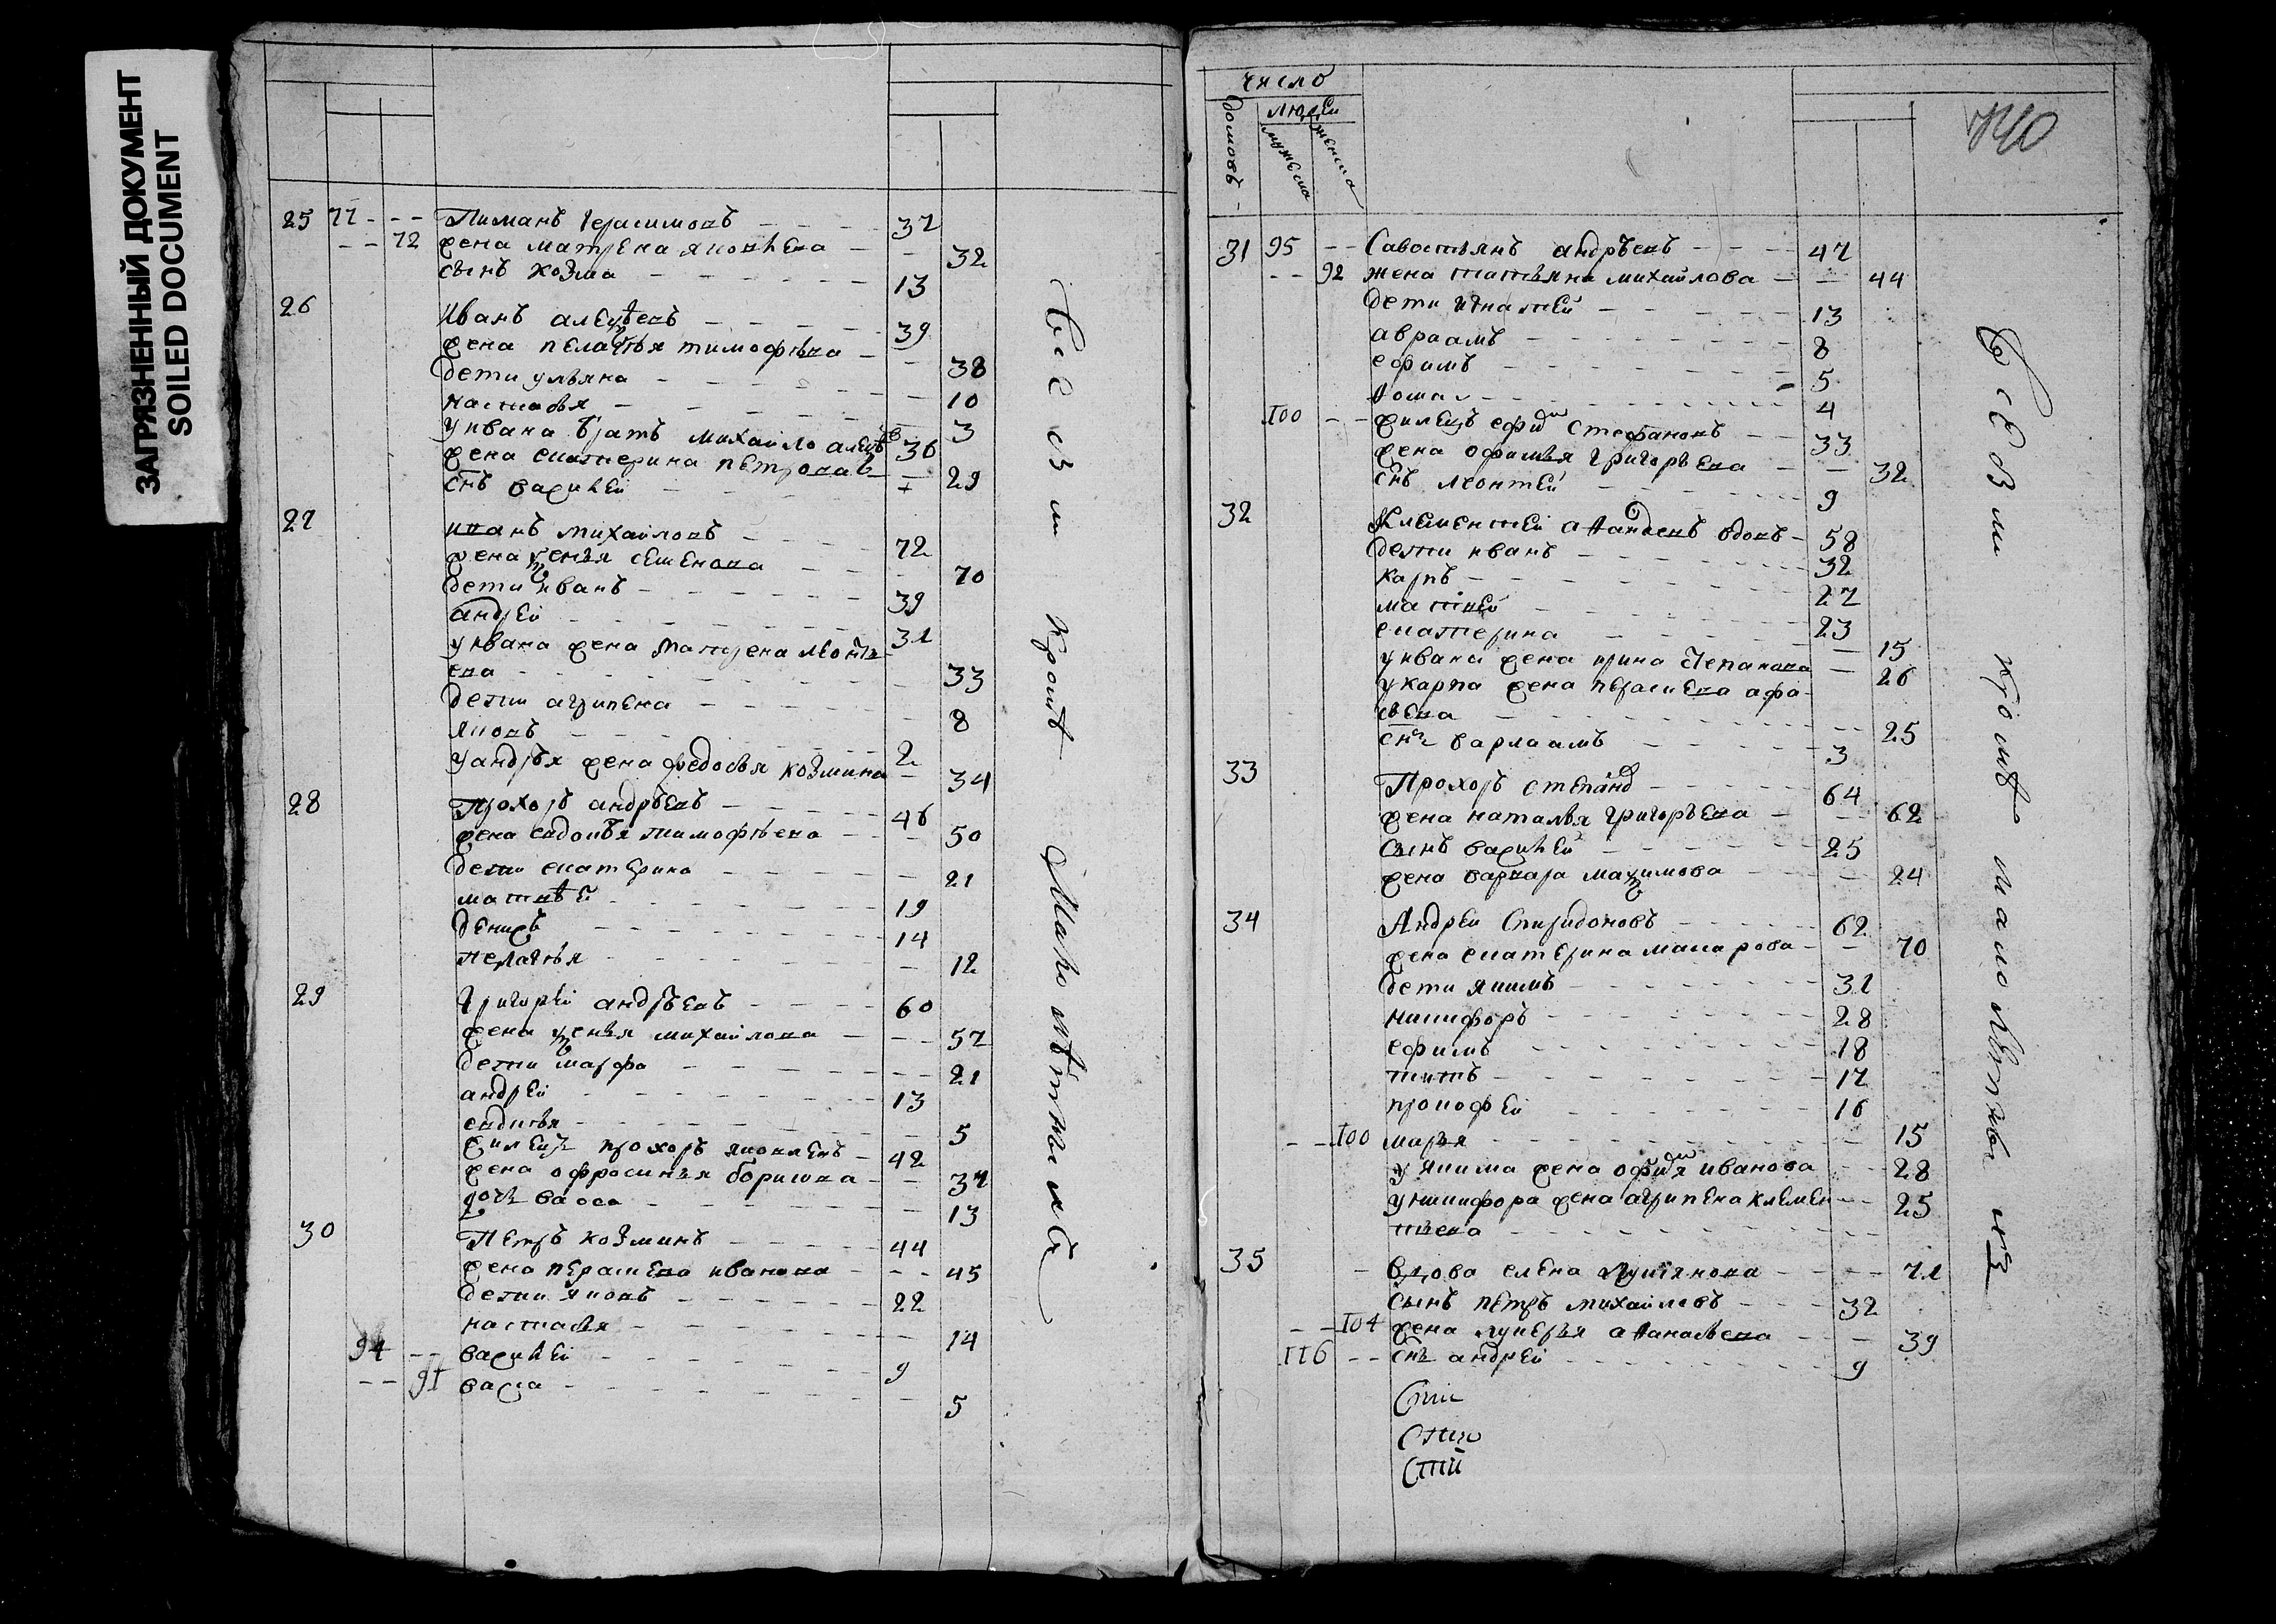 ЗАГРЯЗНЕННЫЙ ДОКУМЕНТ
SOILED DOCUMENT
25 77 Пиманъ Герасимовъ 37
72 жена матрена яковлева 32
сынъ козма 13
26 Иванъ алексѣевъ 39
жена пелагѣя тимофѣева 38
дети ульяна 10
настасья 3
у ивана братъ михаило алексѣевъ 36
жена екатерина петрова 29
снъ василей
27 иванъ михайловъ 72
жена ксенья семенова 70
дети иванъ 39
андрей 31
у ивана жена матрена леонтьева 33
дети агрипена 8
яковъ 2
у андрѣя жена федосья козмина 34
28 Прохоръ андрѣевъ 46
жена евдокѣя тимофѣева 50
дети екатерина 21
матвѣй 19
денисъ 14
пелагѣя 12
29 Григорѣй андрѣевъ 60
жена ксенья михайлова 57
дети марфа 21
андрей 13
жилецъ прохоръ яковлевъ 42
жена офросинья борисова 37
дочь васса 13
30 Петръ козминъ 44
жена парасковья иванова 45
дети яковъ 22
настасья 14
94 василей 9
91 васса 5
всѣ въ кромѣ малолѣтныхъ
число
домовъ
людей
мужеска
женска
740
31 95 Савостьянъ андрѣевъ 47
92 жена татьяна михайлова 44
дети игнатей 13
авраамъ 8
ефимъ 5
фома 4
100 жилецъ Стефановъ 33
жена офимья григорьева 32
снъ леонтей 9
32 Климентей афанасьевъ вдовъ 58
дети иванъ 32
карпъ 27
матвей 23
екатерина 15
у ивана жена ирина степанова 26
у карпа жена 25
снъ варлаамъ 3
33 Прохоръ степановъ 64
жена наталья григорьева 62
сынъ василей 25
жена варвара максимова 24
34 Андрей Спиридоновъ 62
жена екатерина макарова 70
дети якимъ 31
никифоръ 28
ефимъ 18
титъ 17
прокофей 16
100 марья 15
у якима жена иванова 28
у никифора жена агрипена клементьева 25
35 вдова елена лукьянова 71
сынъ петръ михайловъ 32
104 жена лукерья афанасьева 39
116 снъ андрей 9